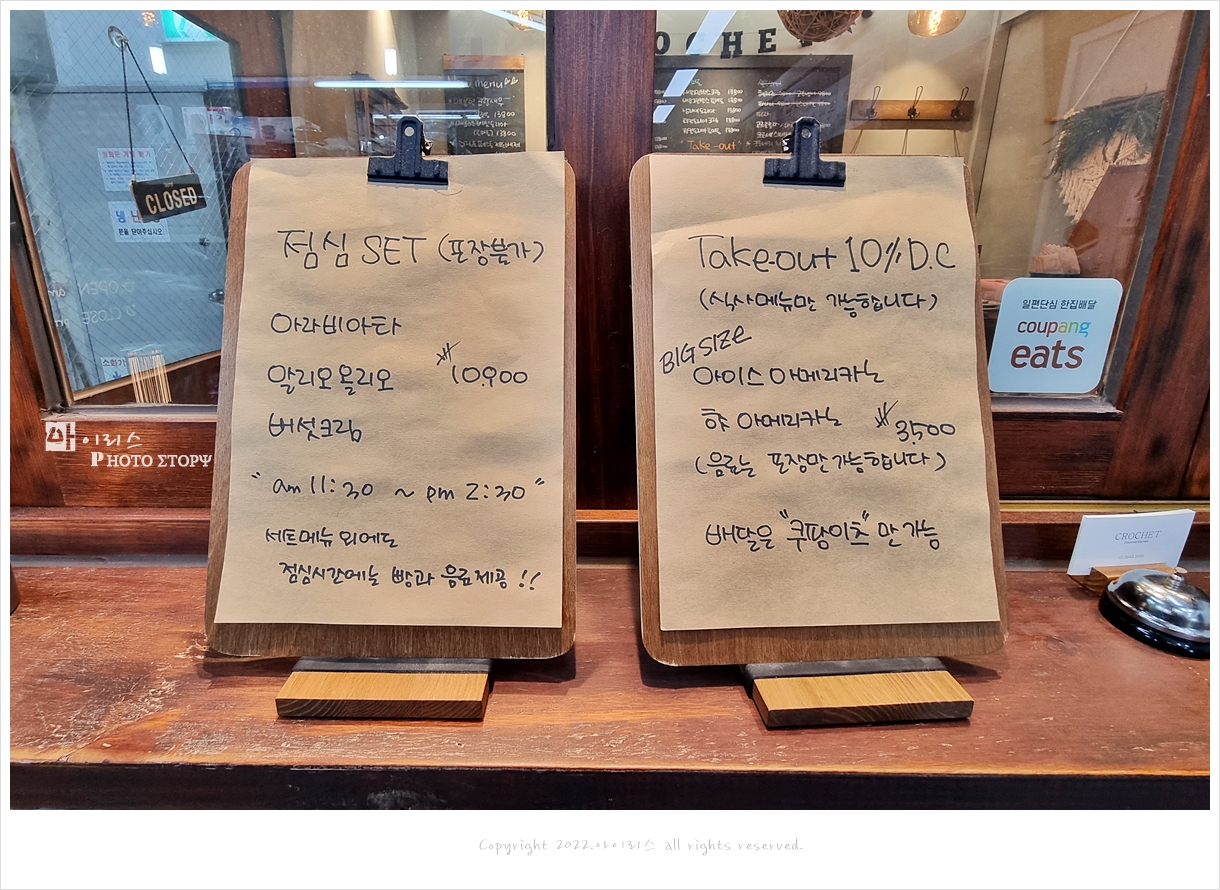 OCHET
menu
Take-out
CLOSED
냉 난
문을 닫아주십시오.
OPEN am
CLOSE
소화기
점심 SET (포장불가)
아라비아타
알리오올리오
₩10,900
버섯크림
"am 11:30 ~ pm 2:30"
세트메뉴 외에도
점심시간에는 빵과 음료 제공 !!
Takeout 10% D.C
(식사메뉴만 가능합니다)
BIG SIZE
아이스 아메리카노
핫 아메리카노
₩3,500
(음료는 포장만 가능합니다)
배달은 "쿠팡이츠"만 가능
일편단심 한집배달
coupang
eats
CROCHET
아이리스
PHOTO ΣTOPΨ
Copyright 2022.아이리스 all rights reserved.